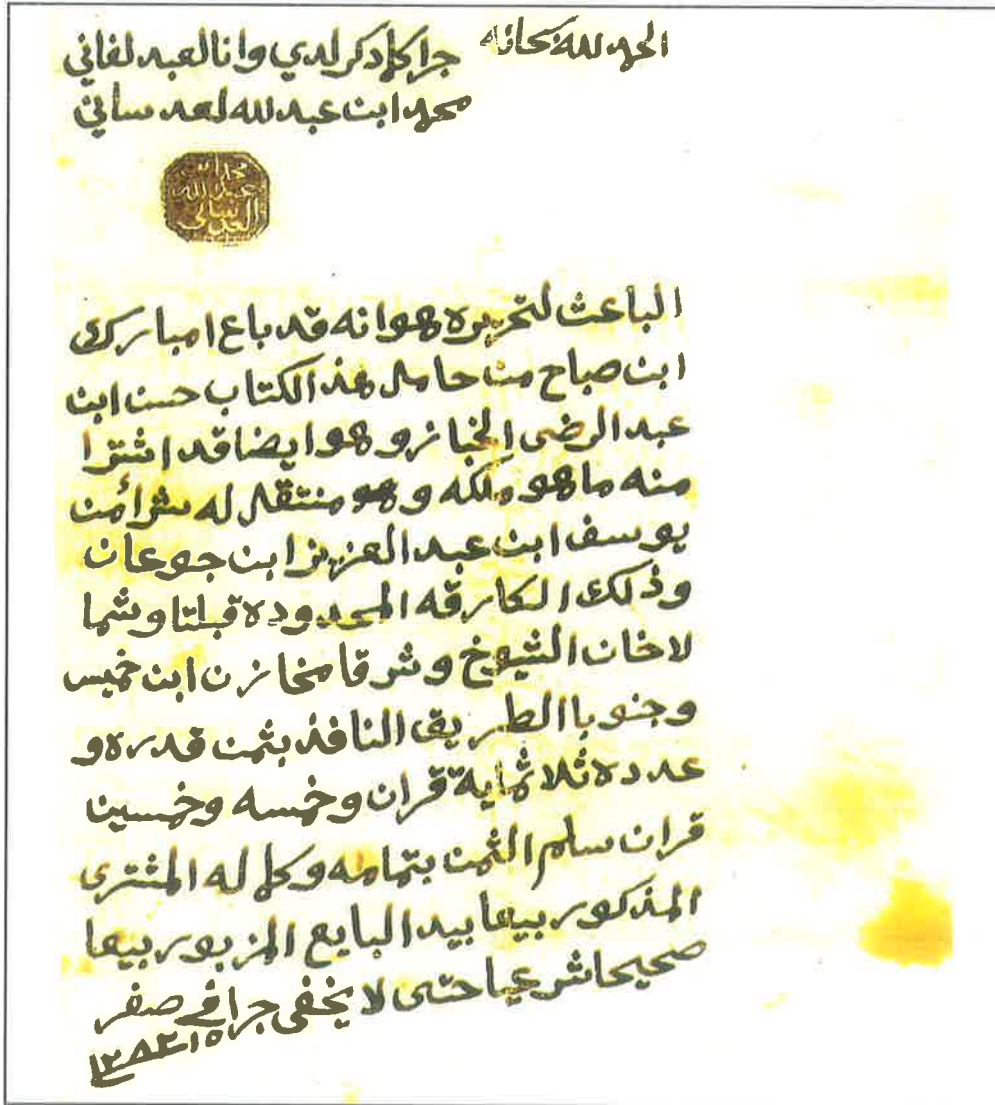 الحمد لله سبحانه
جرا كلما ذكر لدي وانا لعبد لفاني
محمد ابن عبد لله لعدساني
محمد ابن
عبد الله
العدساني
الباعث لتحريره هو انه قد باع امبارك
ابن صباح من حامل هذ الكتاب حسن ابن
عبد الرضى الخباز وهو ايضا قد اشترا
منه ما هو ملكه وهو منتقل له بشرأ من
يوسف ابن عبد العزيز ابن جوعان
وذلك الكارقه المحدوده قبلتا وشما
لا خان الشيوخ وشرقا مخازن ابن خميس
وجنوبا الطريق النافذ بثمن قدره و
عدده ثلاثماية قران وخمسه وخمسين
قران سلم الثمن بتمامه وكماله المشتري
المذكور بيعا بيد البايع المزبور بيعا
صحيحا شرعيا حتى لا يخفى جرا في صفر
١٥ ١٢٨٢